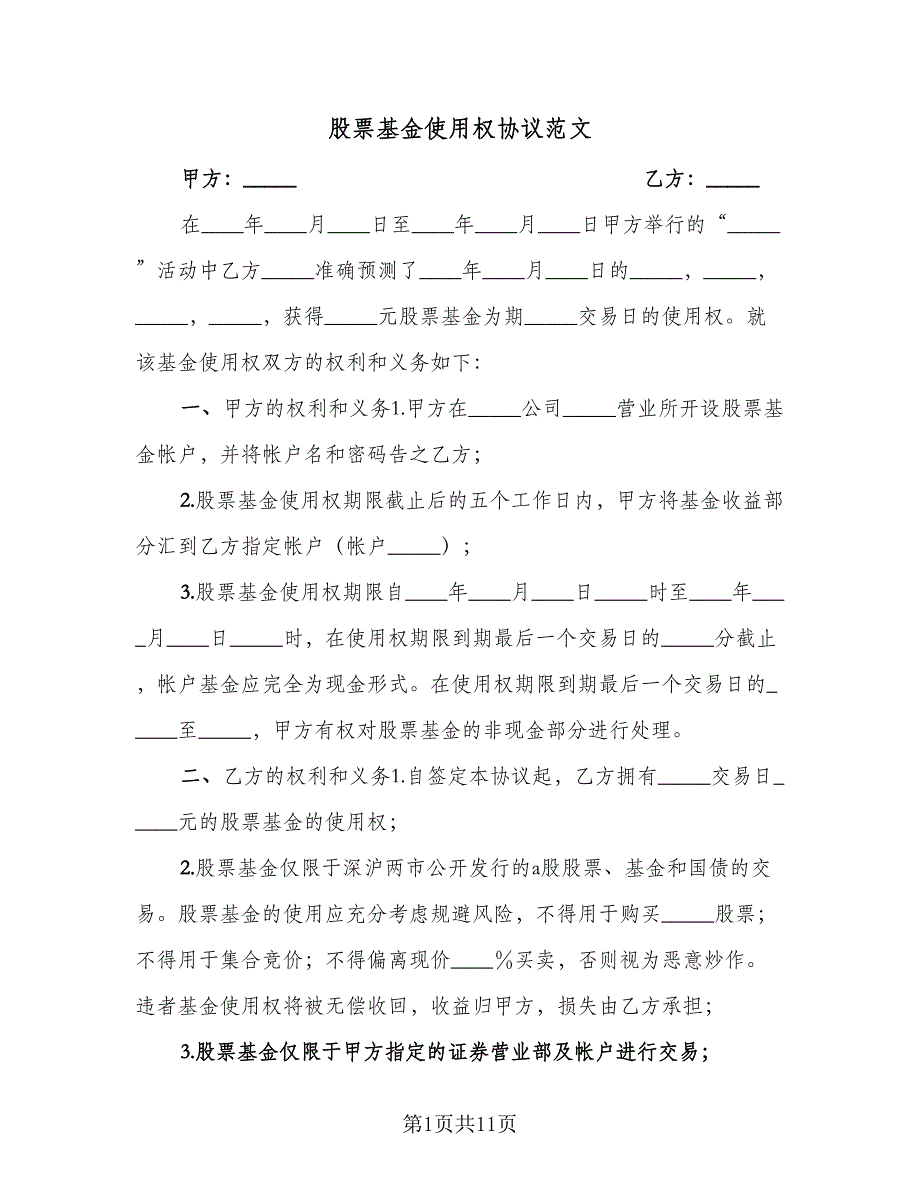 股票基金使用权协议范文
甲方：_____ 乙方：_____
在____年____月____日至____年____月____日甲方举行的“_____
”活动中乙方_____准确预测了____年____月____日的_____，_____，
_____，_____，获得_____元股票基金为期_____交易日的使用权。就
该基金使用权双方的权利和义务如下：
一、甲方的权利和义务1.甲方在_____公司_____营业所开设股票基
金帐户，并将帐户名和密码告之乙方；
2.股票基金使用权期限截止后的五个工作日内，甲方将基金收益部
分汇到乙方指定帐户（帐户_____）；
3.股票基金使用权期限自____年____月____日_____时至____年___
_月____日_____时，在使用权期限到期最后一个交易日的_____分截止
，帐户基金应完全为现金形式。在使用权期限到期最后一个交易日的_
____至_____，甲方有权对股票基金的非现金部分进行处理。
二、乙方的权利和义务1.自签定本协议起，乙方拥有_____交易日_
____元的股票基金的使用权；
2.股票基金仅限于深沪两市公开发行的a股股票、基金和国债的交
易。股票基金的使用应充分考虑规避风险，不得用于购买_____股票；
不得用于集合竞价；不得偏离现价____％买卖，否则视为恶意炒作。
违者基金使用权将被无偿收回，收益归甲方，损失由乙方承担；
3.股票基金仅限于甲方指定的证券营业部及帐户进行交易；
第1页共11页